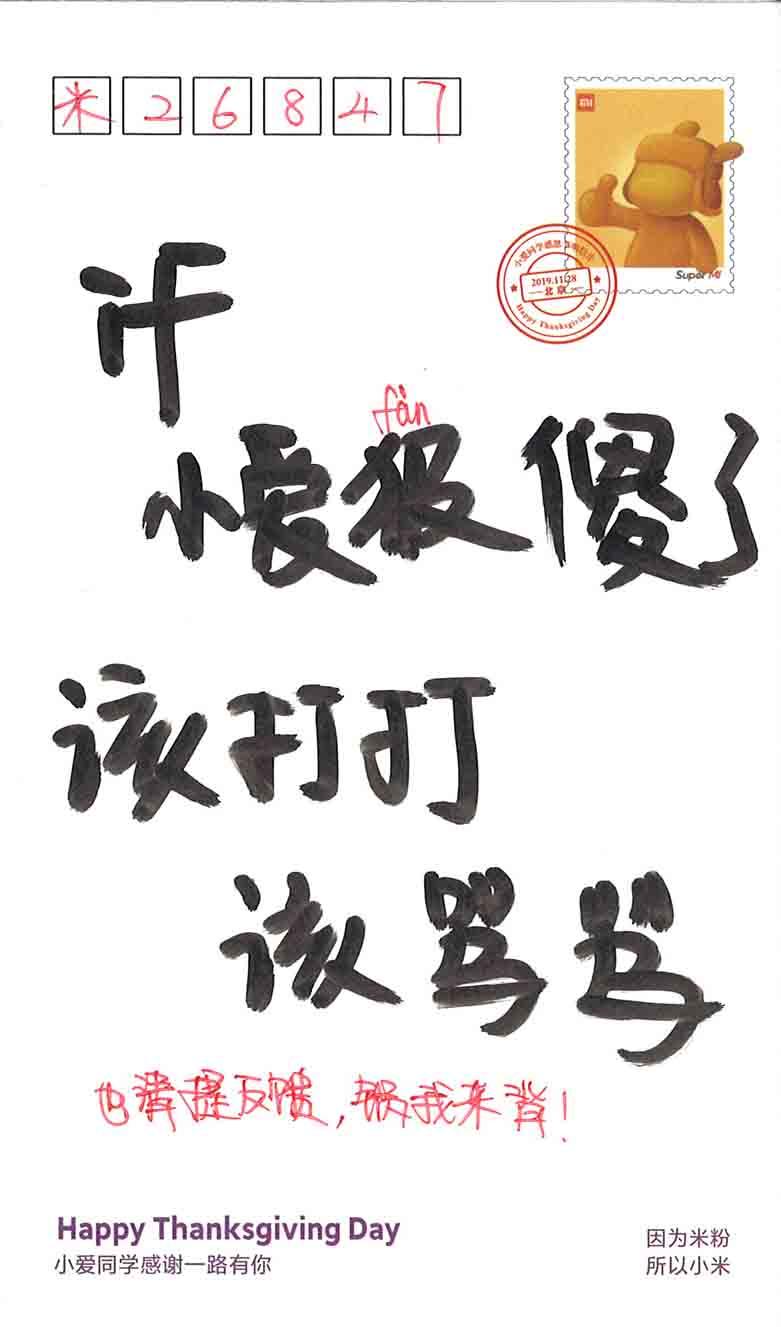 米26847
MI
Super MI
小爱同学感恩
2019.11.28
北京
Happy Thanksgiving Day
fàn
小爱 傻了
该打打
该骂骂
也請提反馈,锅我来背!
Happy Thanksgiving Day
小爱同学感谢一路有你
因为米粉
所以小米